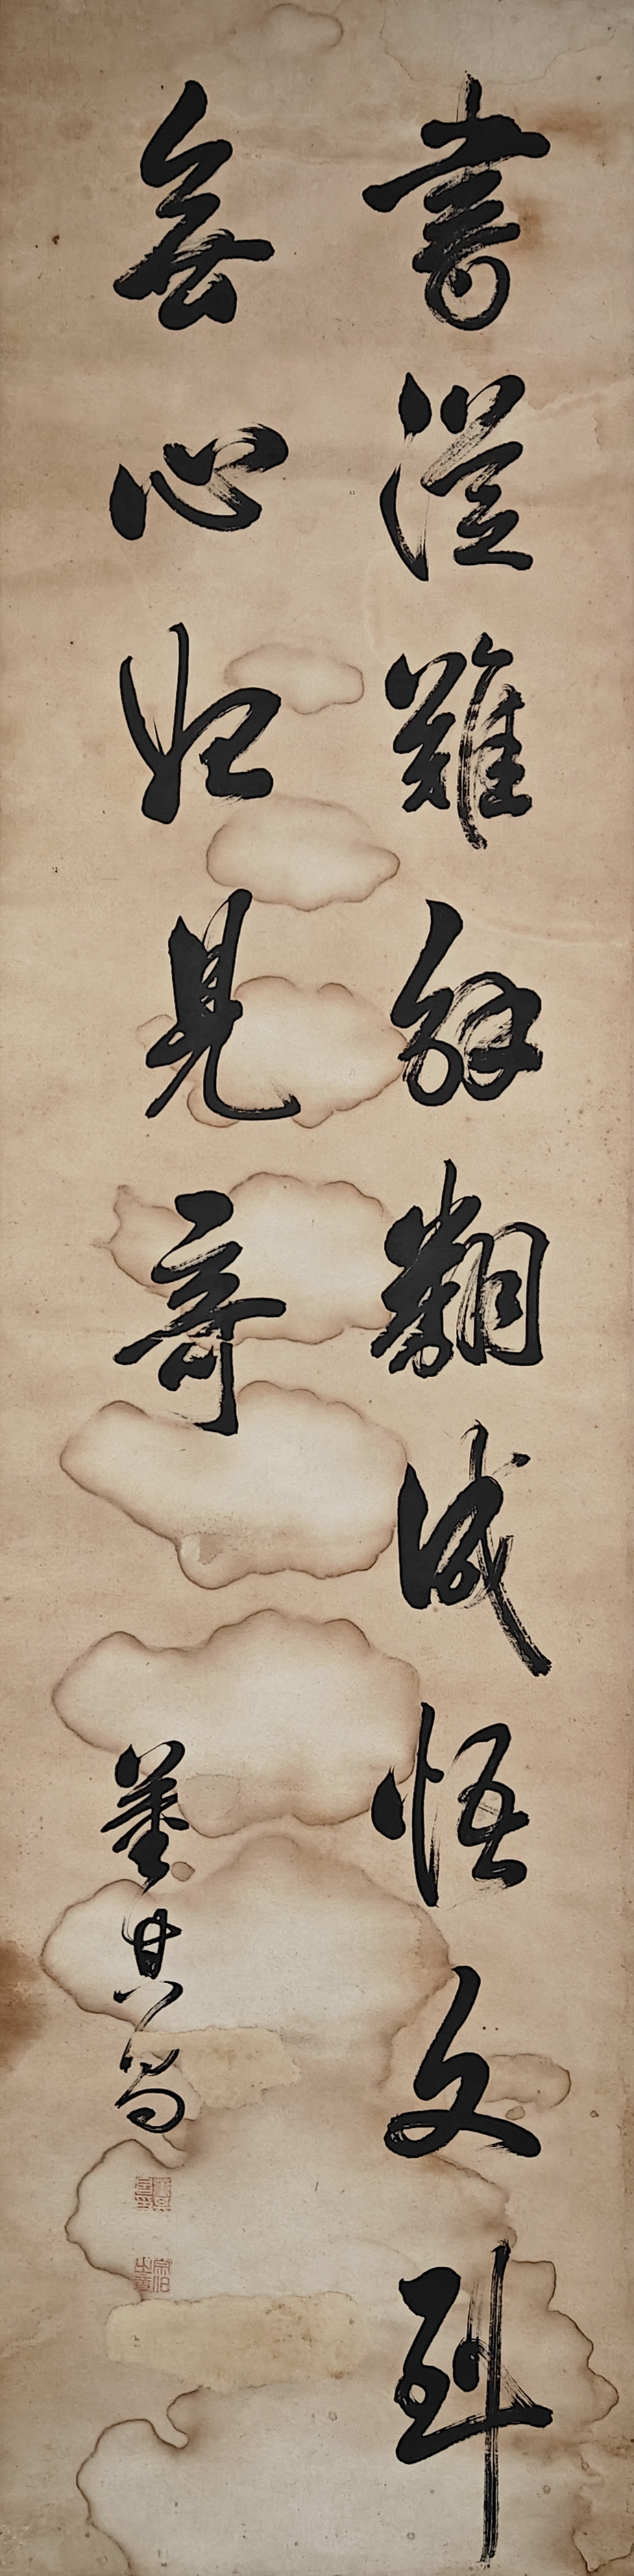 書從難解翻成悟文到
無心始見奇
董其昌